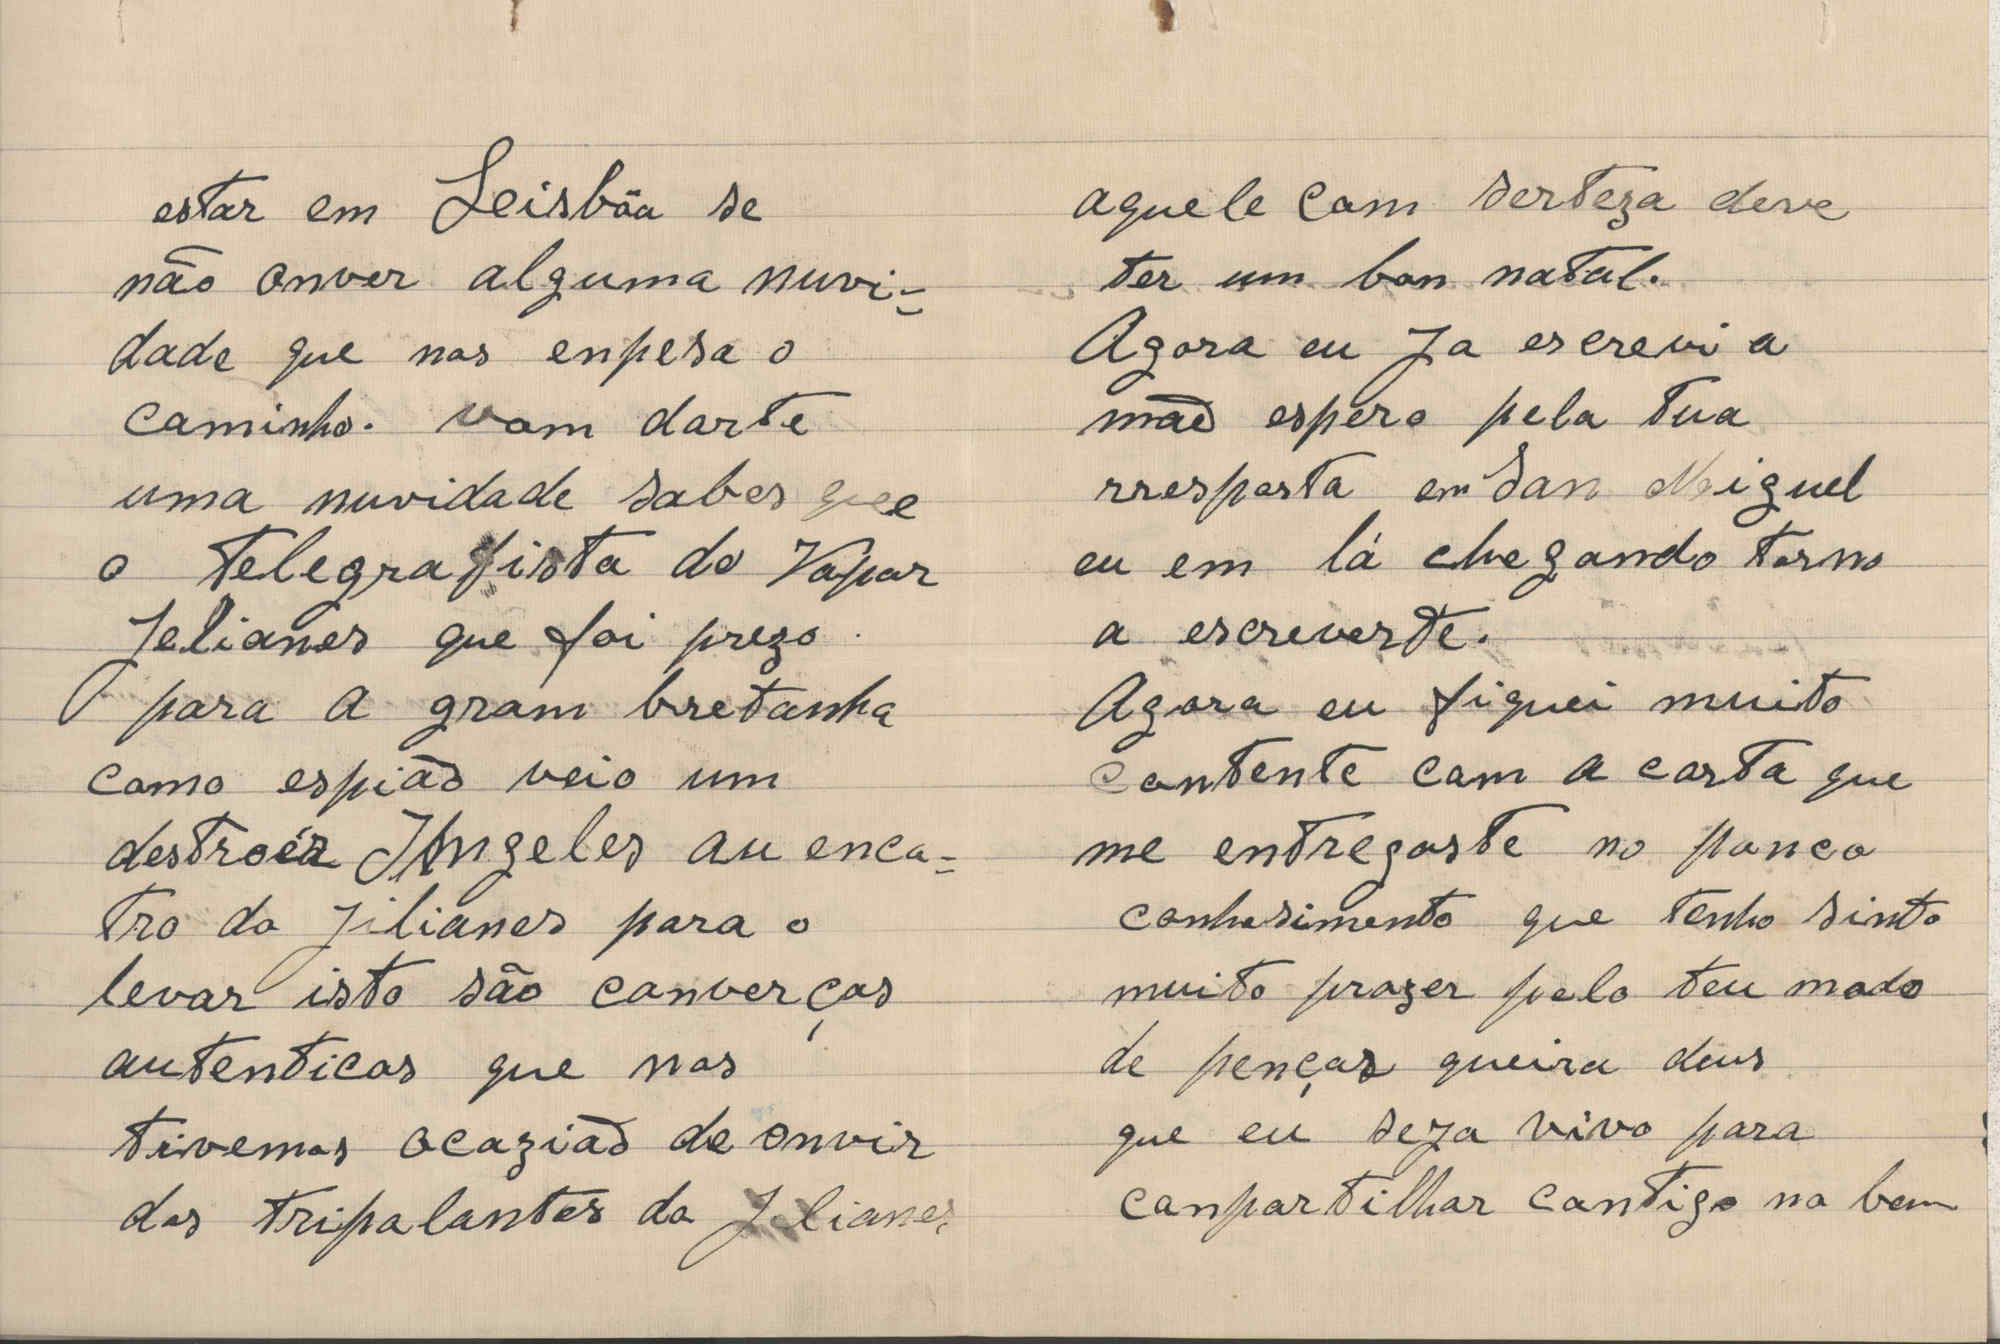 estar em Leisbõa se
não onver alguma nuvi=
dade que nos enpesa o
caminho. vom darte
uma nuvidade sabes que
o telegrafista do Vapor
Jelianes que foi prezo.
para a gram bretanha
como espiaõ veio um
destroér Angeles au enco=
tro do Jilianes para o
levar isto são converças
autenticas que nos
tivemos ocaziaõ de onvir
dos tripalantes do Jelianes
aquele com serteza deve
ter um bon natal.
Agora eu Ja escrevi a
maẽ espero pela tua
rresposta em San Miguel
eu em lá chegando torno
a escreverte.
Agora eu fiquei muito
contente com a carta que
me entregaste no ponco
conhesimento que tenho sinto
muito prazer pelo teu modo
de pençar queira deus
que eu seja vivo para
conpartilhar contigo no bem